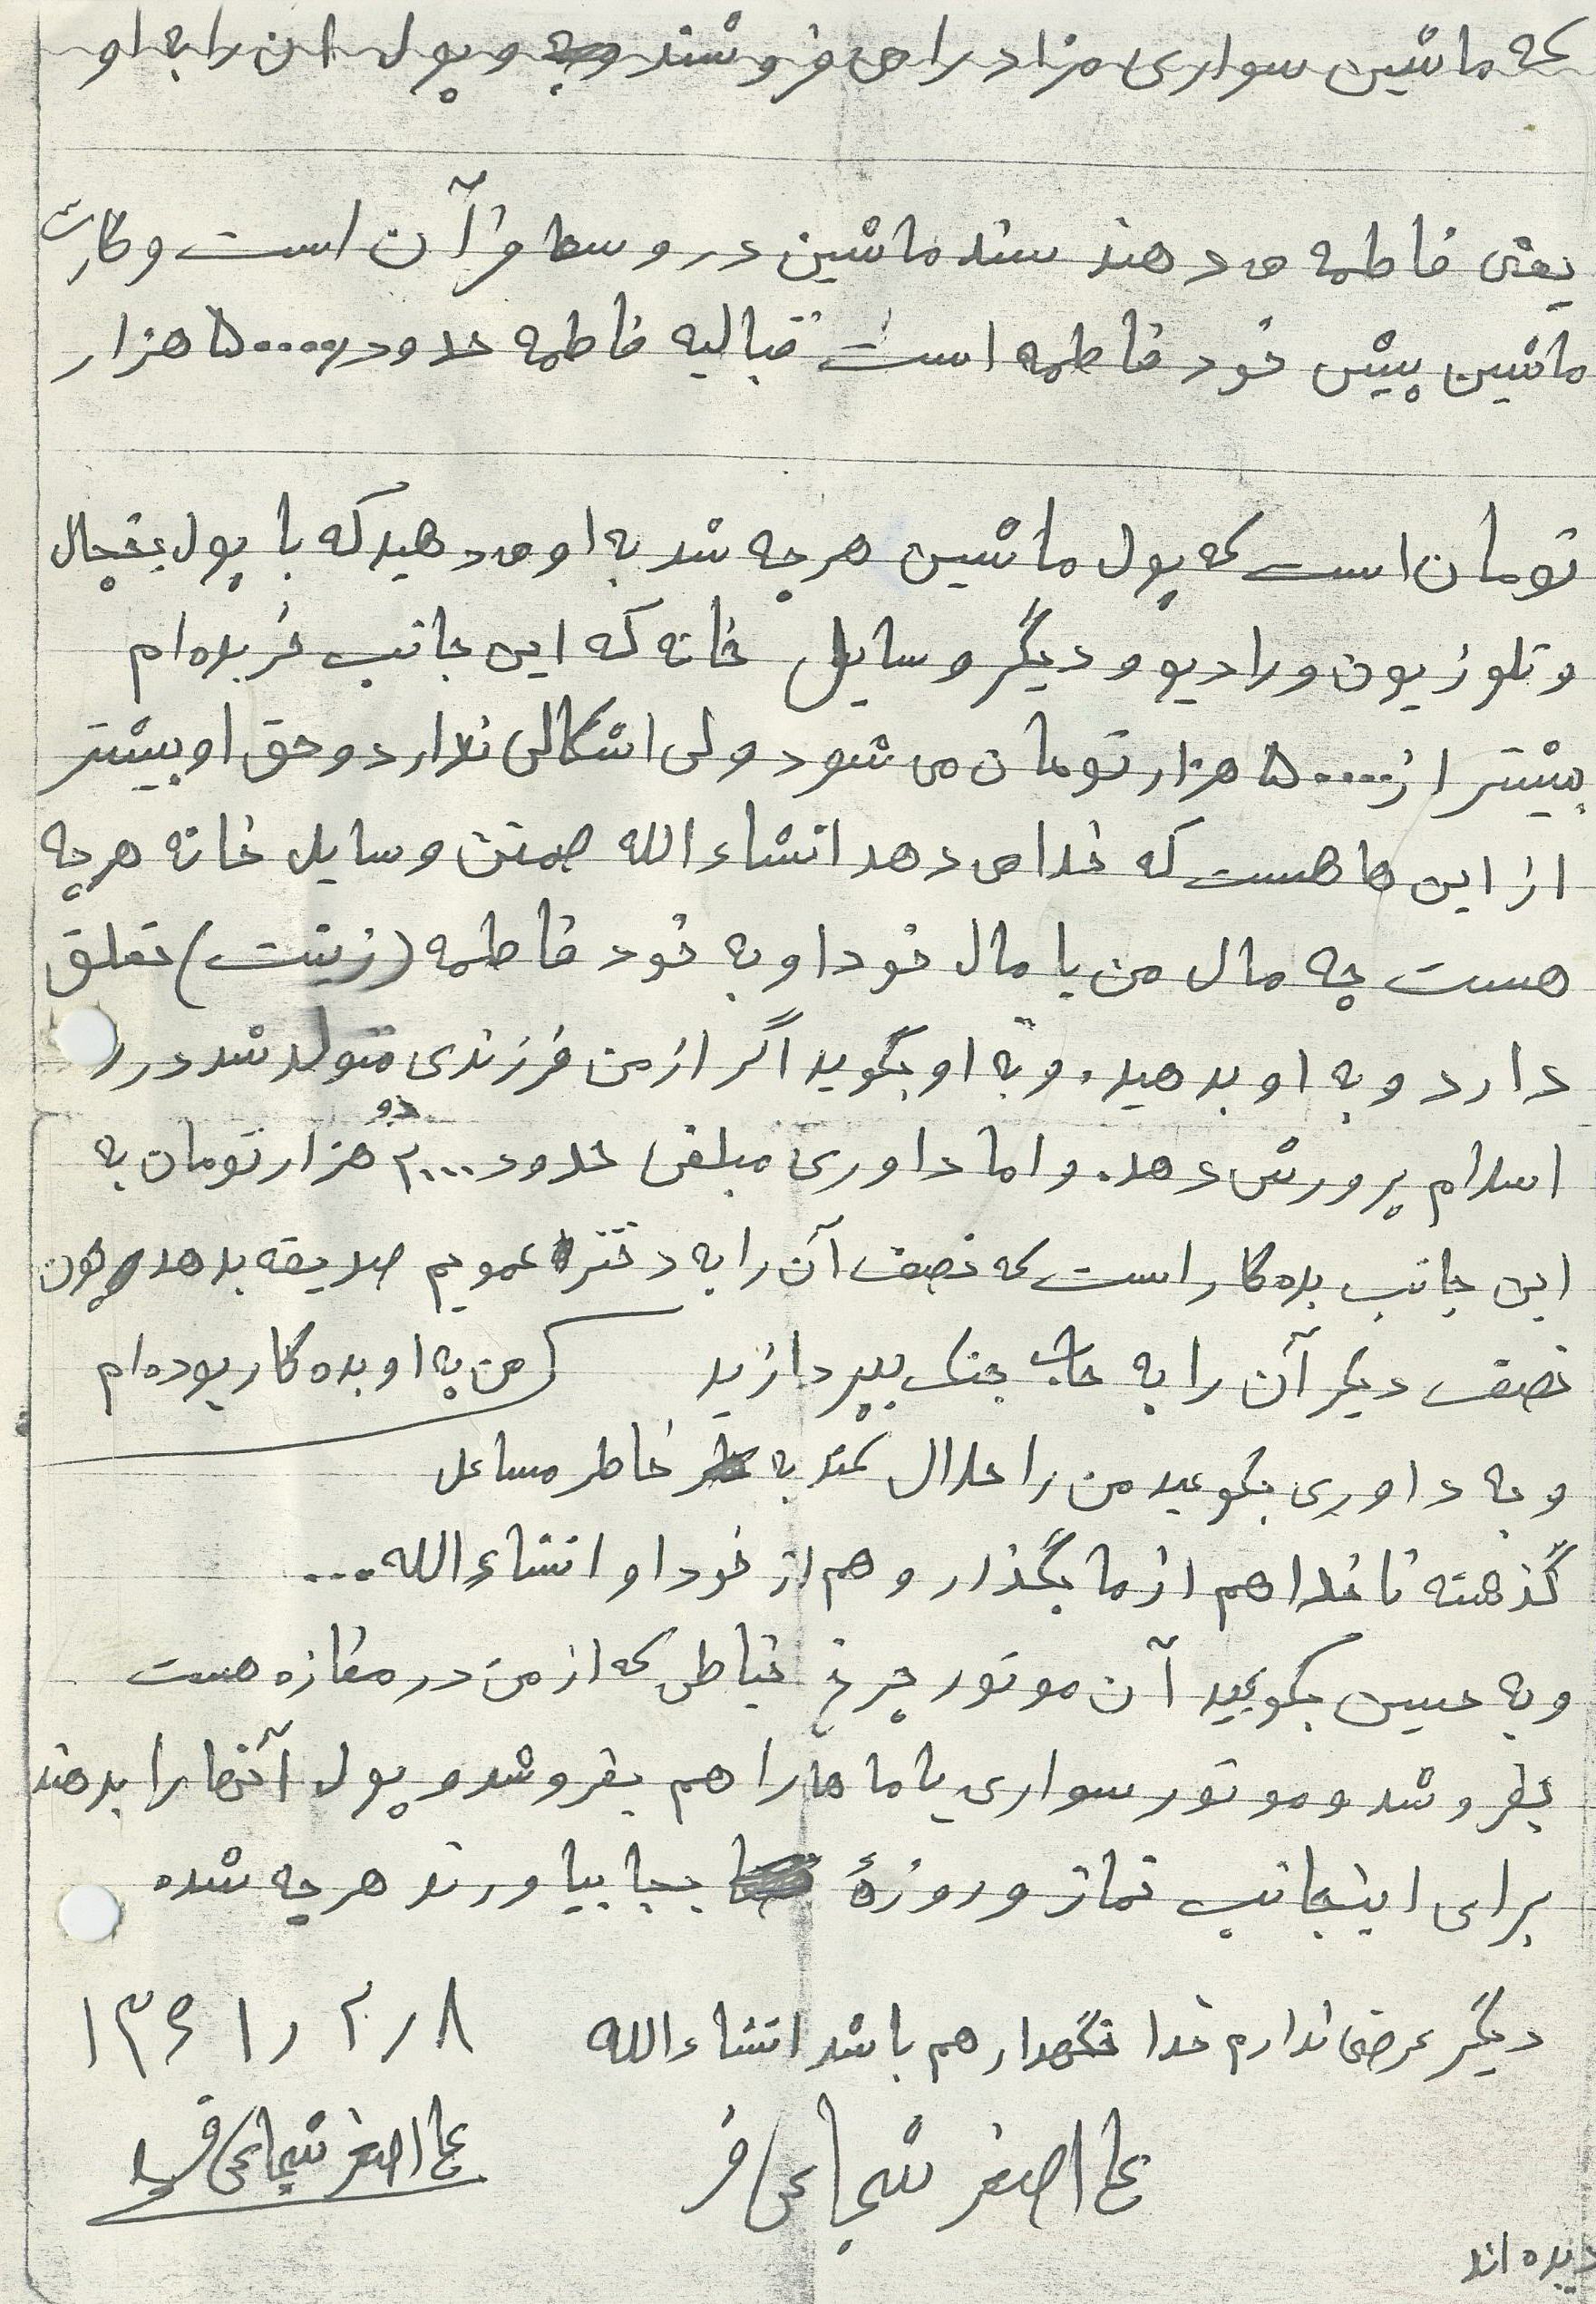 که ماشین سواری مزاد را می فروشند و پول ان را به او
یعنی فاطمه می دهند سند ماشین در وسط قرآن است و کارت
ماشین پیش خود فاطمه است قبالیه فاطمه حدود ۵۰۰۰۰ هزار
تومان است که پول ماشین هر چه شد به او می دهید که با پول یخچال
و تلوزیون و رادیو و دیگر وسایل خانه که این جانب خریده ام
بیشتر از ۵۰۰۰۰ هزار تومان می شود ولی اشکالی ندارد و حق او بیشتر
از این ها هست که خدا می دهد انشاء الله ضمتن وسایل خانه هر چه
هست چه مال من یا مال خود او به خود فاطمه (زینت) تعلق
دارد و به او بدهید. و به او بگوید اگر از من فرزندی متولد شد در ر
اسلام پرورش دهد. و اما داوری مبلغی حدود ۲۰۰۰ دو هزار تومان به
این جانب بده کار است که نصف آن را به دختر عمویم صدیقه بدهد چون
من به او بده کار بوده ام
نصف دیگر آن را به حساب جنگ بپردازید
و به داوری بگوئید من را حلال کند به خاطر مسائل
گذهشته تا خدا هم از ما بگذار و هم از خود او انشاء الله...
و به حسین بگوئید آن موتور چرخ خیاطی که از من در مغازه هست
بفروشد و موتور سواری یاماها را هم بفروشد و پول آنها را بدهند
برای اینجانب نماز و روزۀ بجا بیاورند هر چه شده
دیگر عرضی ندارم خدا نگهدار هم باشد انشاء الله ۱۳۶۱/۲/۸
علی اصغر شجاعی فر علی اصغر شجاعی فر
دیده اند